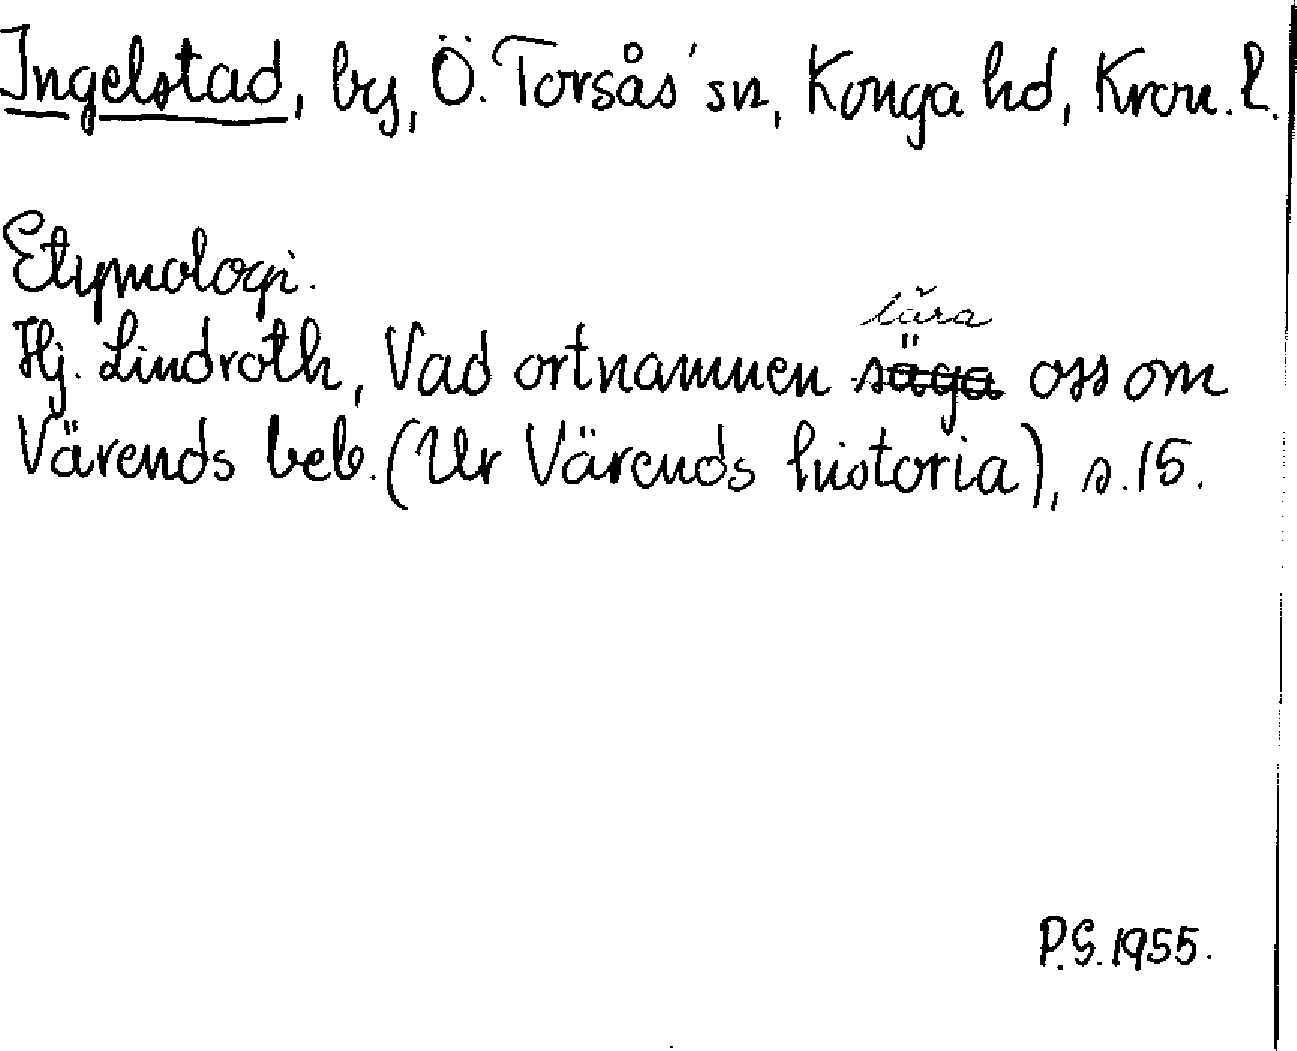 Ingelstad, by, Ö. Torsås sn, Konga hd, Kron. l.
Etymologi.
lära
Hj. Lindroth, Vad ortnamnen säga oss om
Värends beb. (Ur Värends historia), s. 15.
P.G. 1955.